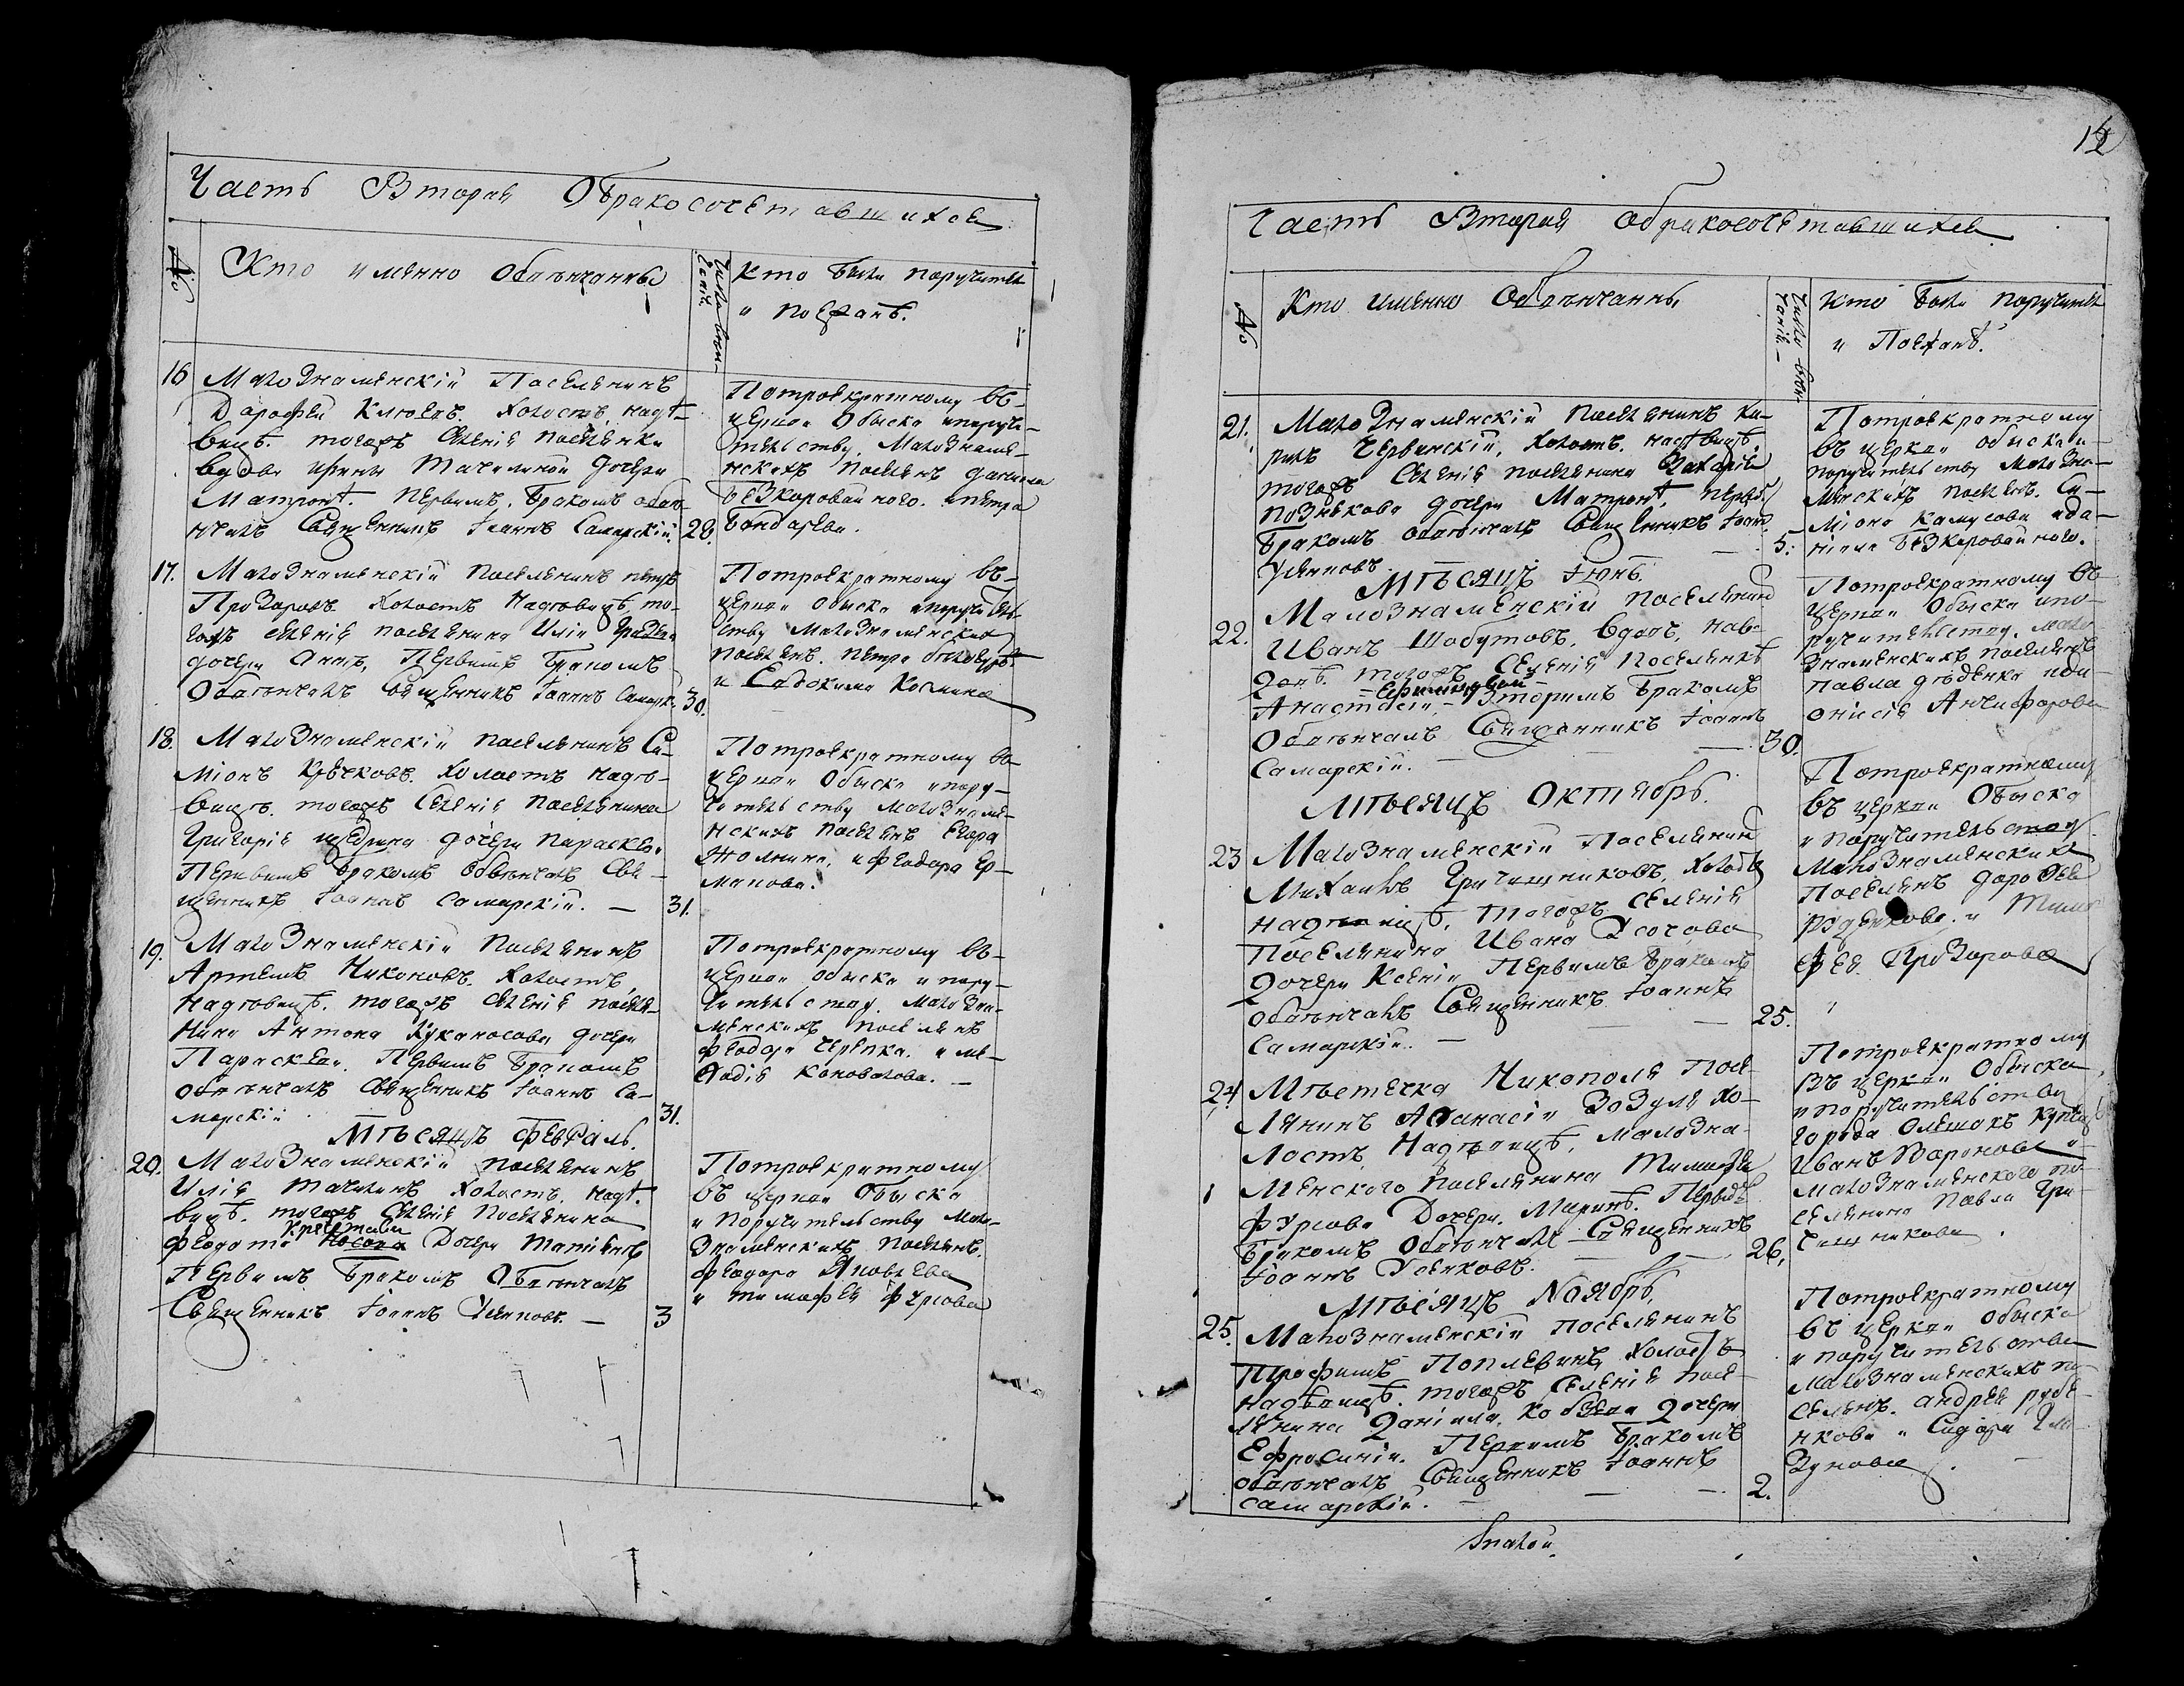 Часть Вторая О Бракосочетавшихся
№
Кто именно Обвѣнчанны
Кто были поручител
и поезжанъ.
16
Малознаменскій Поселянинъ
Дарофѣй Клюевъ. Холостъ, надѣ-
вицѣ. тогожъ Селенія поселянки
вдовы Ирины Тачилиной дочери
Матронѣ. первымъ. Бракомъ обвѣ-
нчалъ Священникъ Іоаннъ Самарскій.
28.
Потроекратному въ-
церкви Обыску ипоручи-
тельству. Малознаме-
нскихъ поселянъ данила
Безкоровайного. ипетра
Бондарева.
17.
Малознаменскій поселянинъ петръ
Прозоровъ. Холостъ надѣвицѣ, то-
гожъ селенія поселянина Иліи
дочери Аннѣ, Первымъ Бракомъ
Обвѣнчалъ Священникъ Іоаннъ Самарск.
30.
Потроекратному въ-
церкви Обыску ипоручитель-
ству Малознаменскихъ
поселянъ. петра
и Евдокима Космина
18.
Малознаменскій поселянинъ Си-
міонъ Крѣчковъ. Холостъ надѣ-
вицѣ. тогожъ Селенія поселянина
Григорія щедрина дочери Параскеви
Первымъ Бракомъ Обвѣнчалъ Свя-
щенникъ Іоаннъ Самарскій. —
31.
Потроекратному въ-
церкви Обыску ипору-
чительству Малознаме-
нскихъ поселянъ Егора
Жолнина, и феодора Ер-
макова.
19.
Малознаменскій поселянинъ
Артемъ Никоновъ. Холостъ,
Надѣвицѣ. тогожъ селенія поселя-
нина Антона Куканосова дочери
Параскеви. Первымъ Бракомъ
обвѣнчалъ Священникъ Іоаннъ Са-
марскій
31.
Потроекратному въ-
церкви обыску ипору-
чительству. Малозна-
менскихъ поселянъ
феодора черепка. и ме-
фодія Коновалова. —
Мѣсяцъ февраль.
20.
Малознаменскій поселянинъ
Илія Тачилинъ Холостъ. надѣ-
вицѣ. тогожъ Селенія Поселянина
феодота Носова Дочери Татіянѣ
Первымъ Бракомъ Обвѣнчалъ
Священникъ Іоаннъ Усенковъ. —
3
Потроекратному
въ церкви Обыску
и поручительству Мало-
знаменскихъ поселянъ.
феодора Яковлева
и тимофея фурсова
Часть Вторая О бракосочетавшихся
№
Кто именно Обвѣнчанны
Кто были поручител
и Поезжанъ.
21.
Малознаменскій поселянинъ Ки-
рилъ Червинскій, холостъ. надѣвицѣ,
тогожъ Селенія поселянина Захарія
познякова дочери Матронѣ, первы
Бракомъ обвѣнчалъ Священникъ Іоан
Усенковъ
5.
Потроекратному
въ церкви обыску и
поручительству Малозна-
менскихъ поселянъ. Си-
міона Камусова ида-
ніила Безкоровайного.
Мѣсяцъ Іюнь.
22.
Малознаменскій поселянинъ
Иванъ Шабутовъ. вдовъ, нав-
довѣ. тогожъ Селенія Поселянкѣ
Анастасіи, Вторымъ Бракомъ
Обвѣнчалъ Священникъ Іоаннъ
Самарскій.
30.
Потроекратному въ
Церкви Обыску ипо-
ручительству. мало-
знаменскихъ поселянъ
павла дѣденка иди-
онисія Анчифорова
Мѣсяцъ Октябрь.
23
Малознаменскій Поселянинъ
Михаилъ Гричишниковъ, Холостъ
надѣвицѣ, тогожъ селенія
Поселянина Ивана Усачова
дочери Ксеніи Первымъ бракомъ
обвѣнчалъ Священникъ Іоаннъ
Самарскій. —
25.
Потроекратному
въ церкви Обыску
и поручительству
Малознаменскихъ
Поселянъ дарофея
руденкова. и Тимо
фея. Прозорова
24
Мѣстечка Никополя Посе-
лянинъ Афанасій Зозуля хо-
лостъ, Надѣвицѣ, Малозна-
менского поселянина Тимофея
фурсова Дочери. Маринѣ. Первымъ
Бракомъ Обвѣнчалъ Священникъ
Іоаннъ Усенковъ.
26.
Потроекратному
въ церкви Обыску
и поручительству
города Олешокъ купца
Иванъ Воронова и
малознаменского по-
селянина Павла Гри
чишникова
Мѣсяцъ Ноябрь,
25.
Малознаменскій поселянинъ
Трофимъ Поплевинъ, Холостъ
надѣвицѣ. тогожъ Селенія посе-
лянина Даніила, Кобзева дочери
Ефросиніи. Первымъ Бракомъ
обвѣнчалъ Священникъ Іоаннъ
самарскій.
2.
Потроекратному
въ церкви Обыску
и поручительству
малознаменскихъ по
селянъ. андрея рубе-
нкова и Сидора Гла
зунова